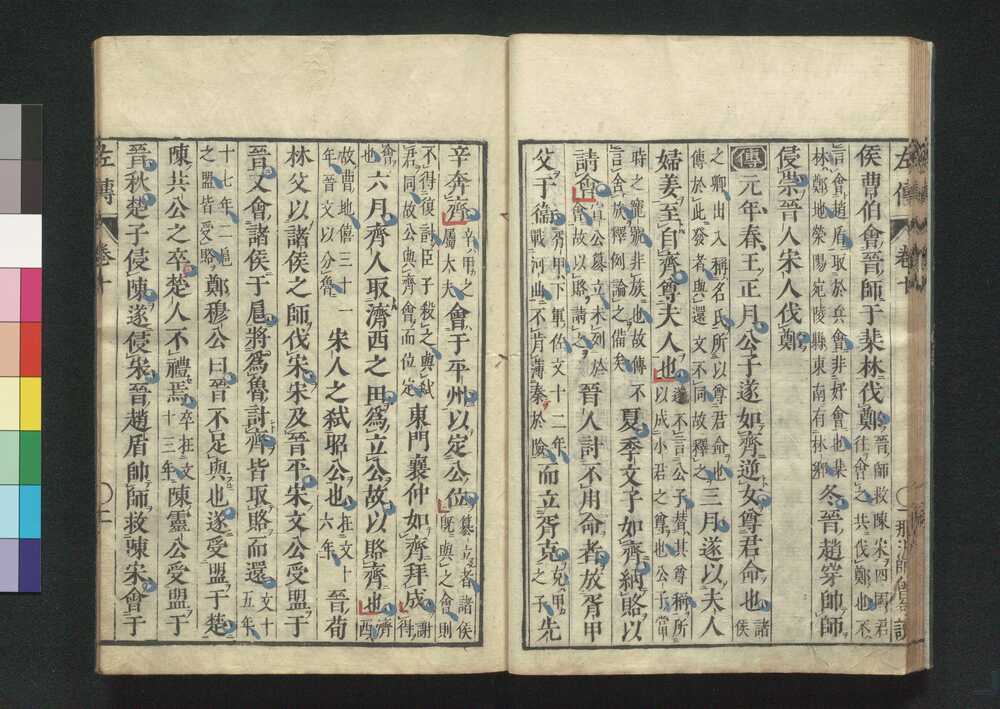 侯曹伯會晉師于棐林伐鄭晉師救陳宋四國君往會之共伐鄭也不
言會趙盾取於兵會非好會也棐林鄭地滎陽宛陵縣東南有林鄉冬晉趙穿帥師
侵崇晉人宋人伐鄭
傳元年春王正月公子遂如齊逆女尊君命也諸侯
之卿出入稱名氏所以尊君命也傳於此發者與還文不同故釋之三月遂以夫人
婦姜至自齊尊夫人也遂不言公子替其尊稱所以成小君之尊也公子當
時之寵號非族也故傳不言舍族釋例論之備矣夏季文子如齊納賂以
請會宣公篡立未列於會故以賂請之晉人討不用命者放胥甲
父于衛胥甲下軍佐文十二年戰河曲不肯薄秦於險而立胥克克甲之子先
辛奔齊辛甲之屬大夫會于平州以定公位篡立者諸侯既與之會則
不得復討臣子殺之與弒君同故公與齊會而位定東門襄仲如齊拜成謝得
會也六月齊人取濟西之田爲立公故以賂齊也濟西
故曹地僖三十一年晉文以分魯宋人之弒昭公也在文十六年晉荀
林父以諸侯之師伐宋宋及晉平宋文公受盟于
晉又會諸侯于扈將爲魯討齊皆取賂而還文十五年
十七年二扈之盟皆受賂鄭穆公曰晉不足與也遂受盟于楚
陳共公之卒楚人不禮焉卒在文十三年陳靈公受盟于
晉秋楚子侵陳遂侵宋晉趙盾帥師救陳宋會于
左傳
卷十
二